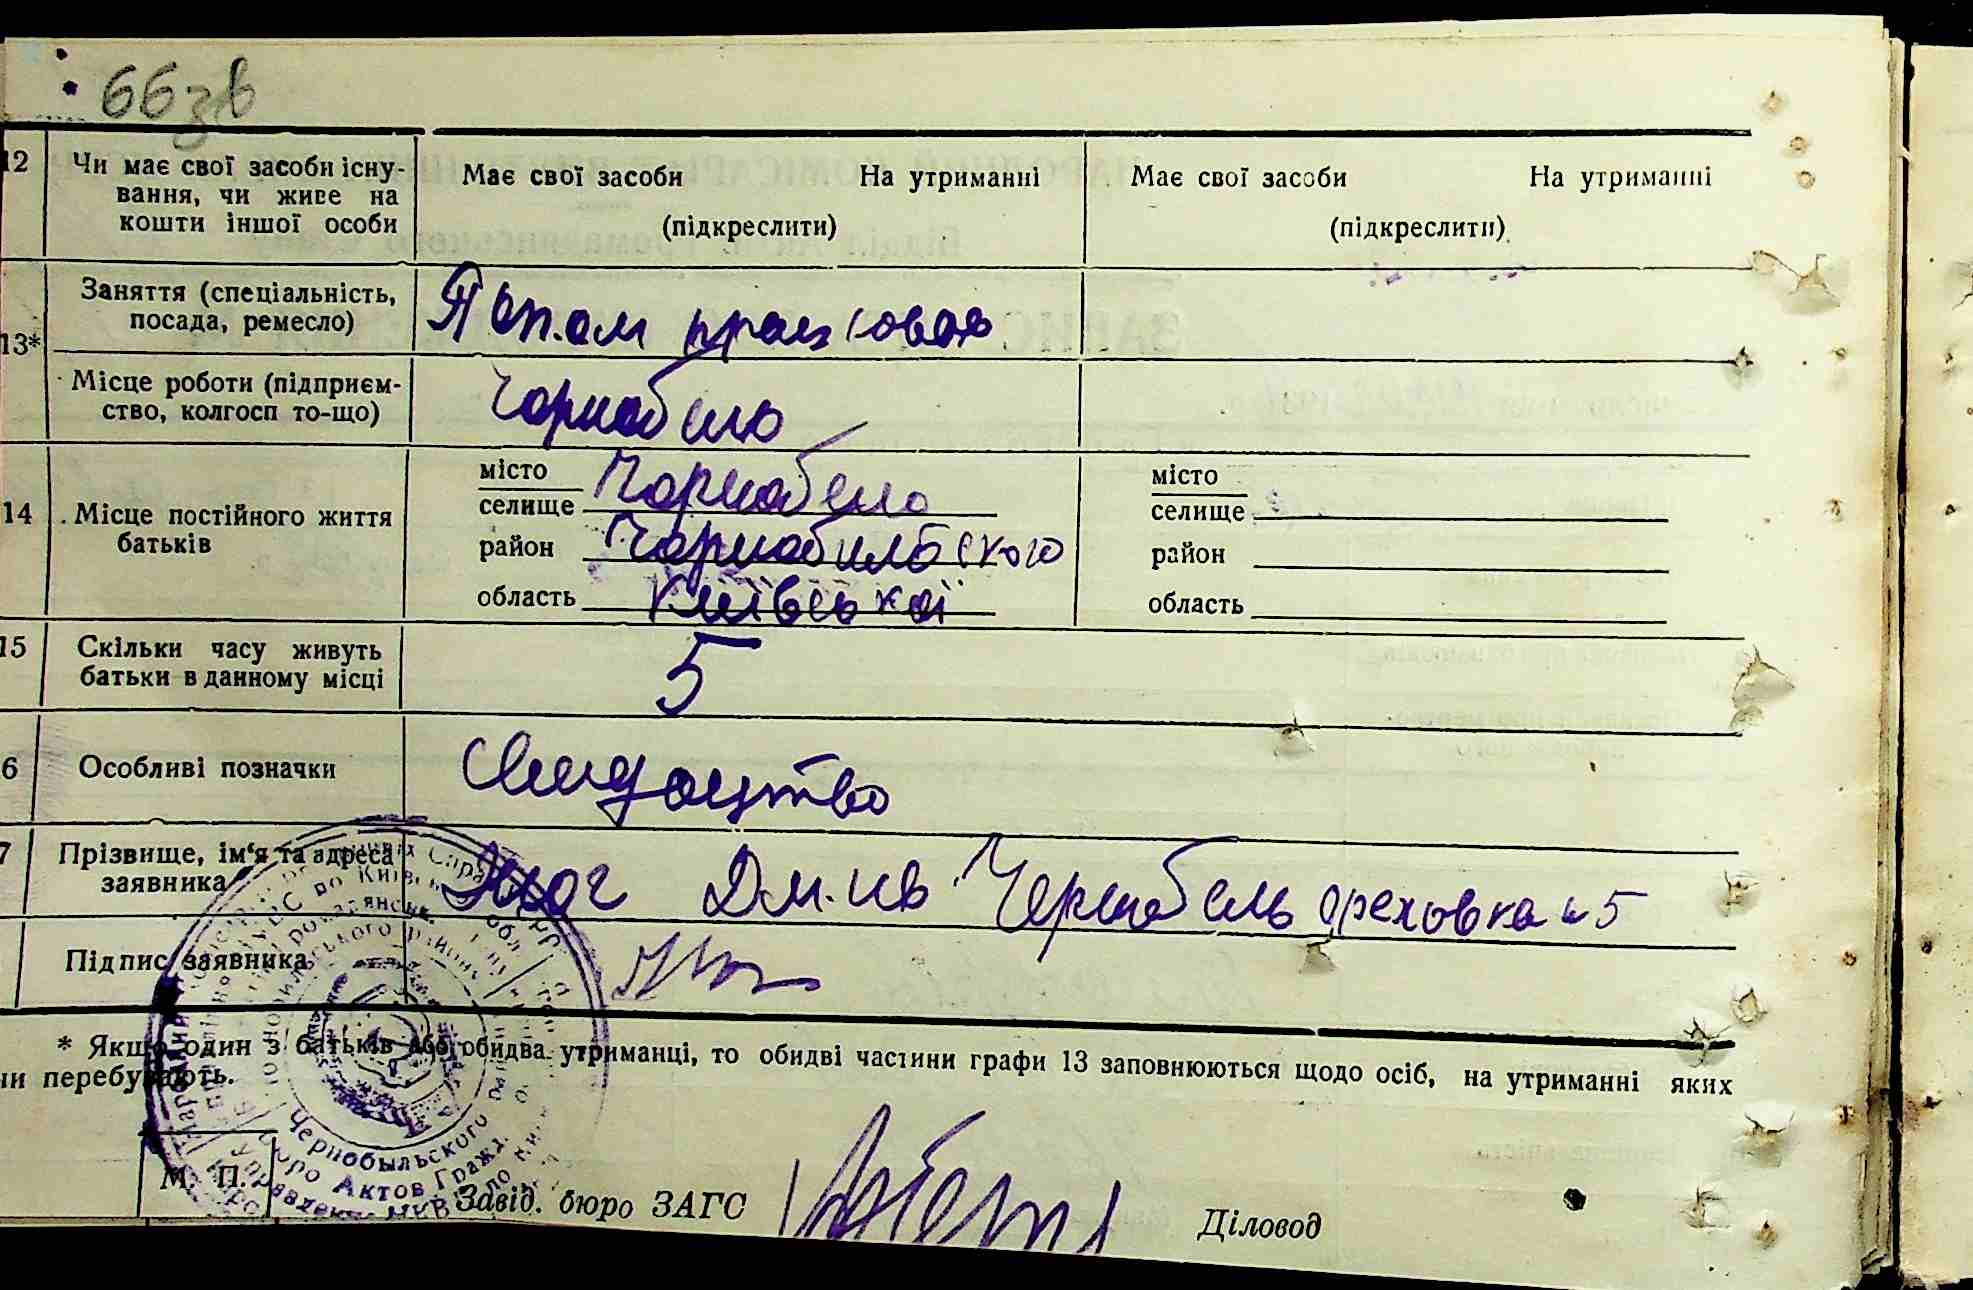 66зв
12 Чи має свої засоби існу-
вання, чи живе на
кошти іншої особи
Має свої засоби На утриманні
(підкреслити)
Має свої засоби На утриманні
(підкреслити)
13* Заняття (спеціальність,
посада, ремесло)
Місце роботи (підприєм-
ство, колгосп то-що)
Чорнобель
14 Місце постійного життя
батьків
місто
селище Чорнобело
район Чорнобилбского
область Київської
місто
селище
район
область
15 Скільки часу живуть
батьки в данному місці
5
6 Особливі позначки
7 Прізвище, ім'я та адреса
заявника
Дм. ив Чернобель ореховка n 5
Підпис заявника
* Якщо один з батьків або обидва утриманці, то обидві частини графи 13 заповнюються щодо осіб, на утриманні яких
ни перебувають.
Чернобыльского
Бюро Актов Гражд.
М. П.
Завід. бюро ЗАГС
Діловод